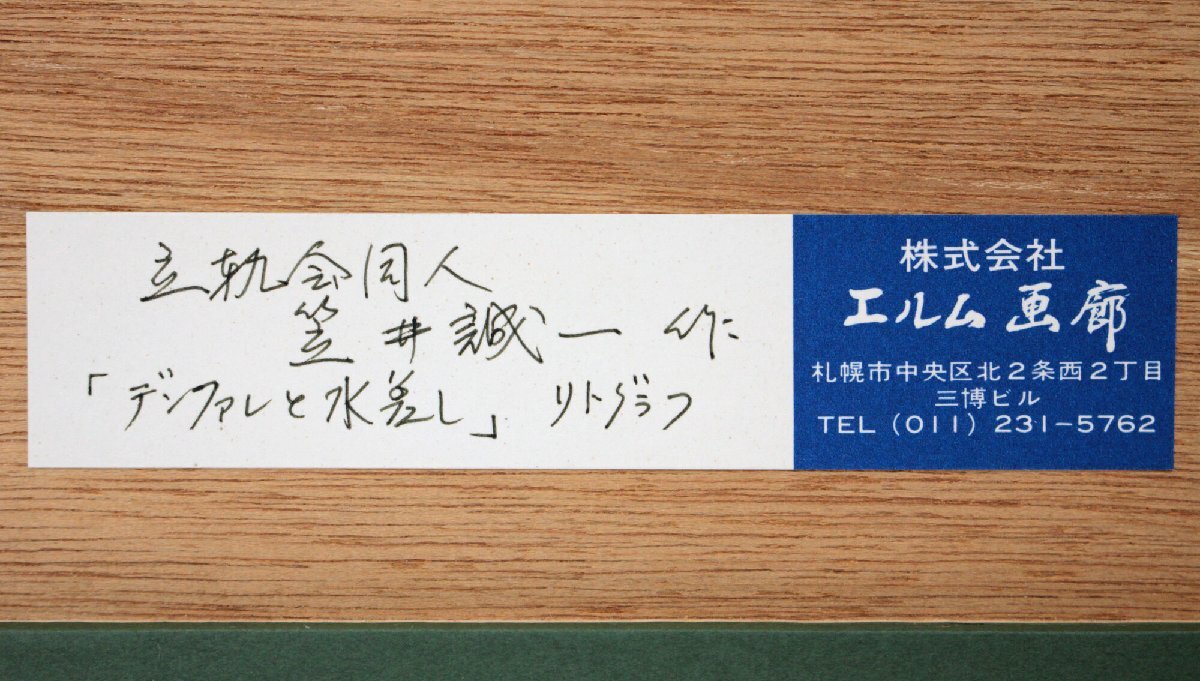 立軌会同人
笠井誠一 作
「デンファレと水差し」 リトグラフ
株式会社
エルム画廊
札幌市中央区北2条西2丁目
三博ビル
TEL (011) 231-5762